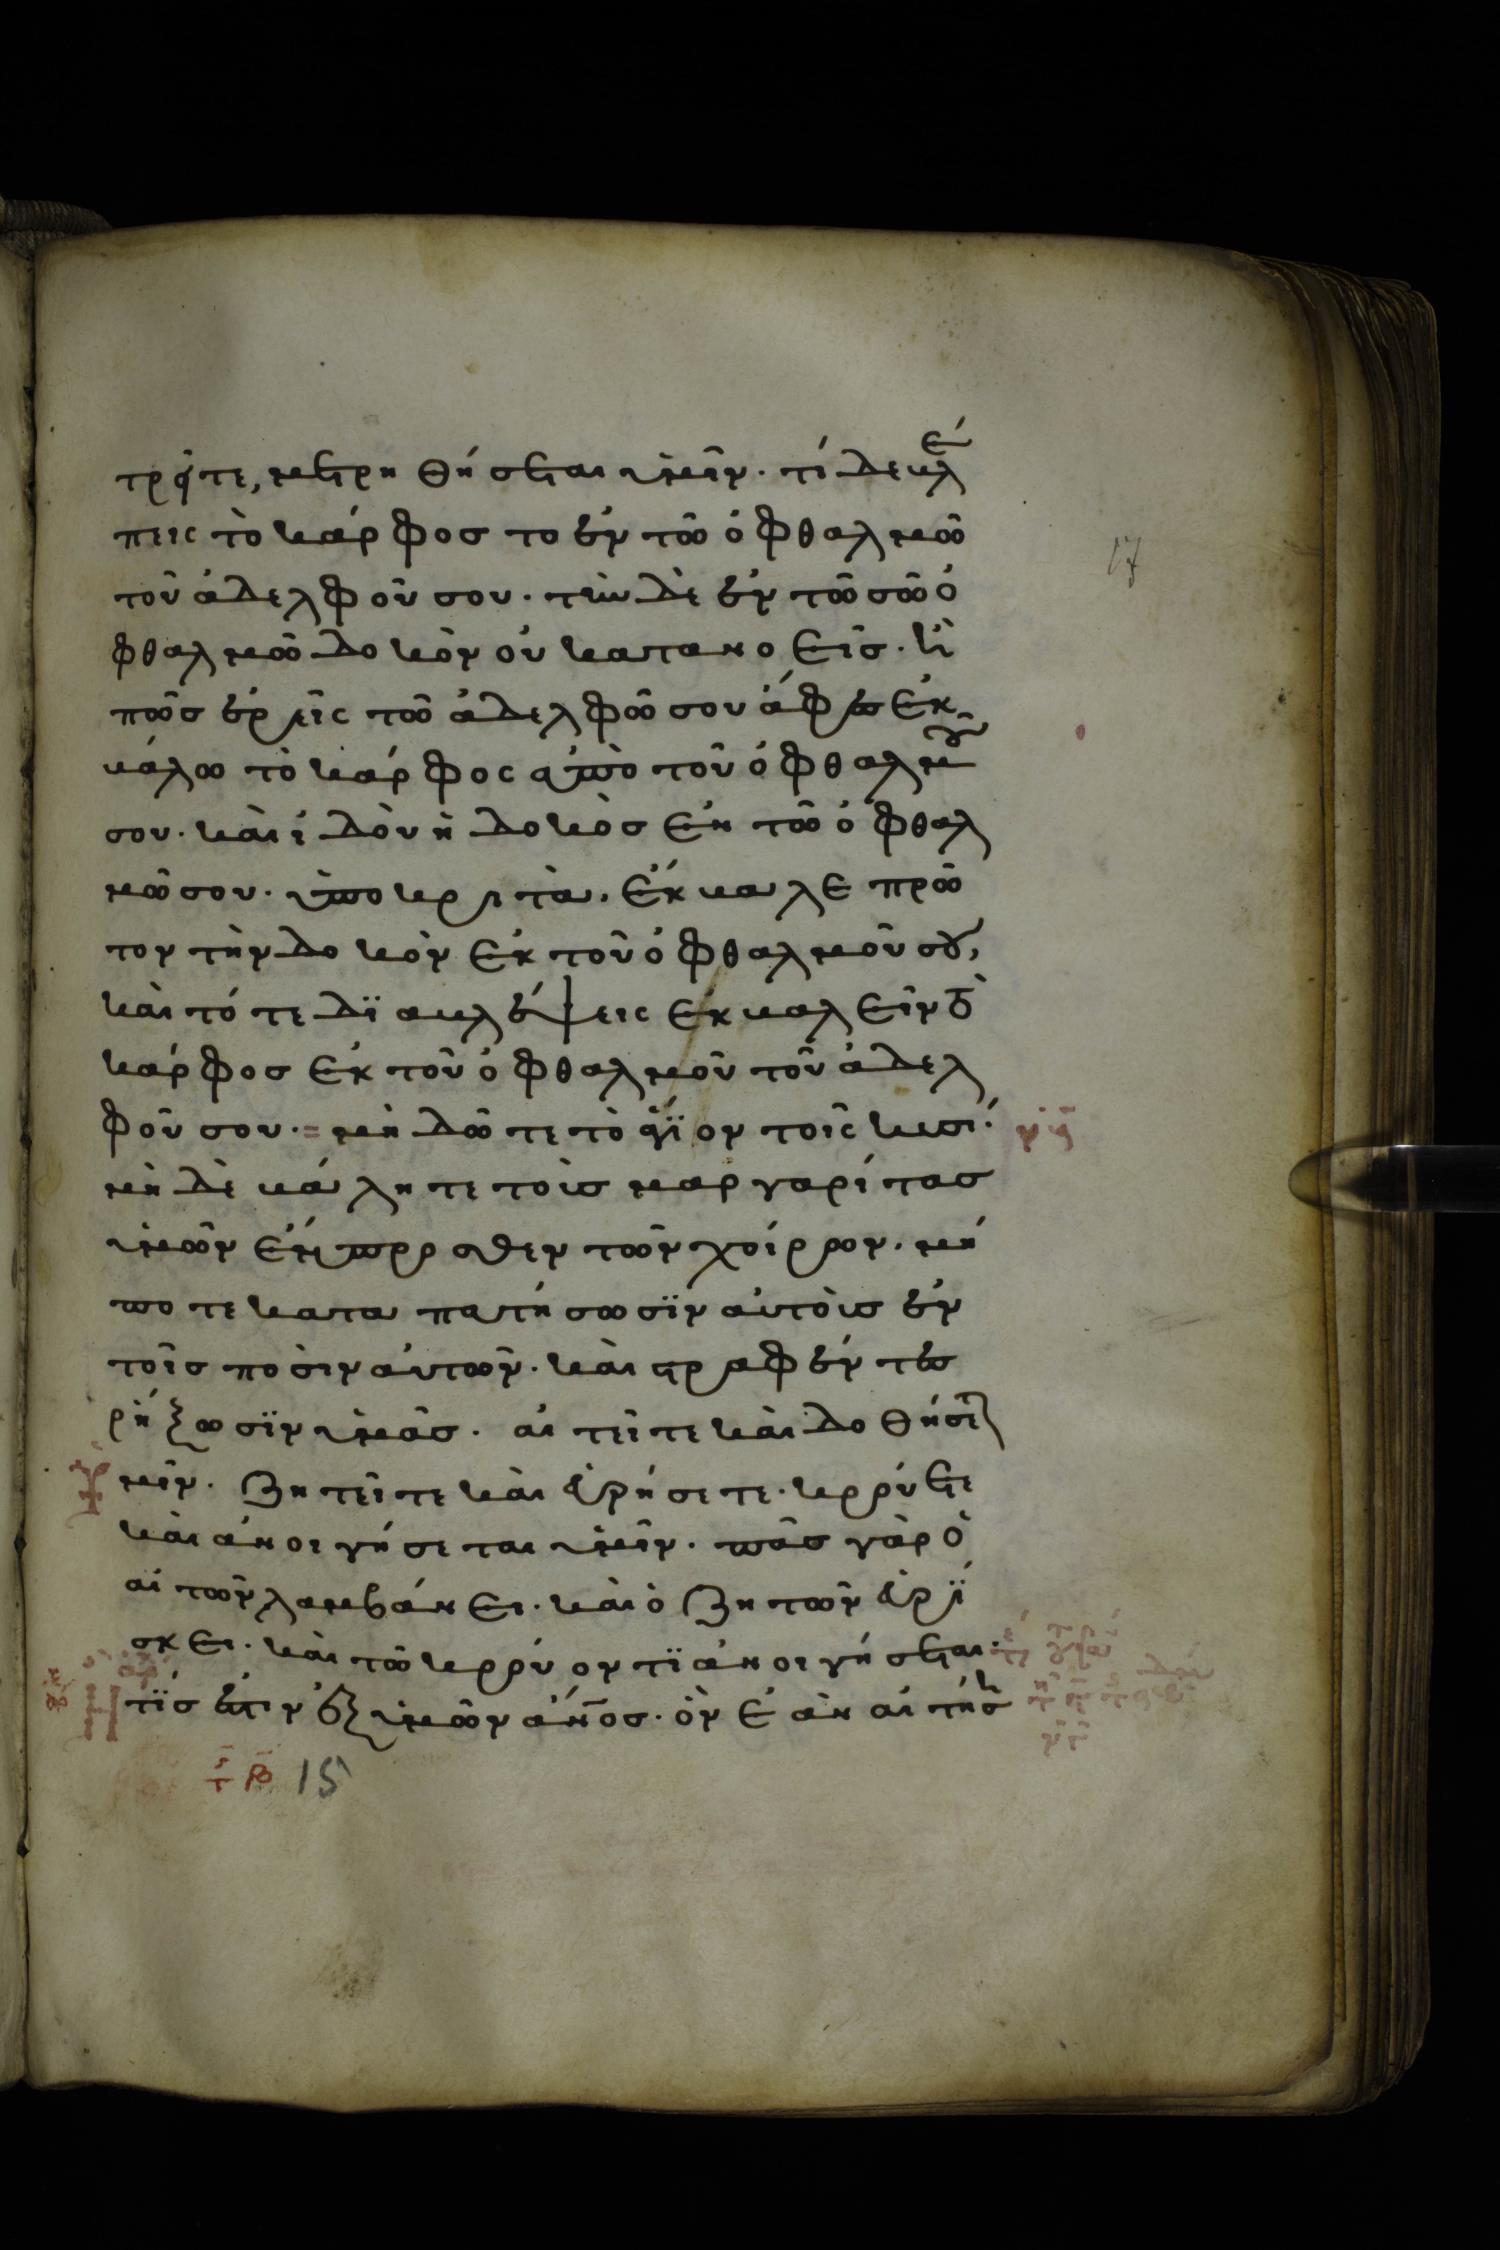 τρεῖτε, μετρηθήσεται ὑμῖν. τί δὲ βλέ
πεις τὸ κάρφοσ το ἐν τῶ ὀφθαλμῶ
τοῦ ἀδελφοῦ σου. τὴν δὲ ἐν τῶ σῶ ὀ
φθαλμῶ δοκὸν οὐ κατανοεῖσ. ἢ
πῶσ ἐρεῖς τῶ ἀδελφῶ σου ἄφες ἐκ
βάλω τὸ κάρφος ἀπὸ τοῦ ὀφθαλμοῦ
σου. καὶ ἰδοὺ ἡ δοκὸσ ἐν τῶ ὀφθαλ
μῶ σου. ὑποκριτὰ. ἔκβαλε πρῶ
τον τὴν δοκὸν ἐκ τοῦ ὀφθαλμοῦ σου,
καὶ τότε δϊαβλέψεις ἐκβαλεῖν τὸ
κάρφοσ ἐκ τοῦ ὀφθαλμοῦ τοῦ ἀδελ
φοῦ σου. μὴ δῶτε τὸ ἅγϊον τοῖς κυσί.
μὴ δὲ βάλητε τοὺσ μαργαρίτασ
ὑμῶν ἔμπροσθεν τῶν χοίρρον. μή
ποτε καταπατήσωσϊν αὐτοὺσ ἐν
τοῖσ ποσὶν αὐτῶν. καὶ στραφέντεσ
ρήξωσϊν ὑμᾶσ. αἰτεῖτε καὶ δοθήσεται
ὑμῖν. ζητεῖτε καὶ εὑρήσετε. κρρύετε
καὶ ἀνοιγήσεται ὑμῖν. πᾶσ γὰρ ὁ
αἰτῶν λαμβάνει. καὶ ὁ ζητῶν εὑρΐ
σκει. καὶ τῶ κρρύοντϊ ἀνοιγήσεται.
Η τϊσ ἐστιν ἐξ ὑμῶν ἄν̅οσ. ὃν ἐὰν αἰτήσῃ
15
17